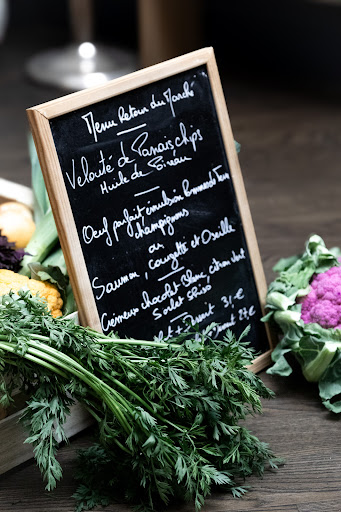 Menu Retour du Marché
Velouté de Panais chips
Huile de
Oeuf parfait émulsion
champignons
ou
Saumon, Courgette et Oseille
Crémeux chocolat Blanc, citron vert
Sorbet
+ 31€
27€